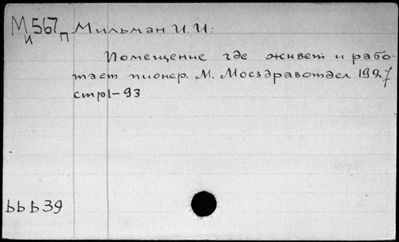 М567п Мильман И.И:
и
Помещение где живет и рабо-
тает пионер. М. Мосздравотдел 1927
стр1-93
ЬЬЬ39